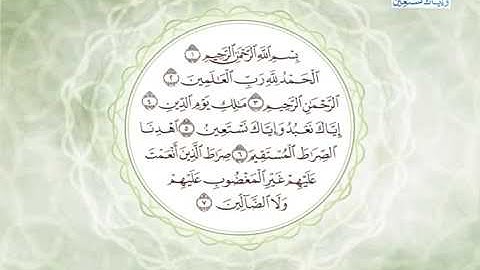 وَإِيَّاكَ نَسْتَعِينُ
بِسْمِ ٱللَّهِ ٱلرَّحْمَٰنِ ٱلرَّحِيمِ ۝١
ٱلْحَمْدُ لِلَّهِ رَبِّ ٱلْعَٰلَمِينَ ۝٢
ٱلرَّحْمَٰنِ ٱلرَّحِيمِ ۝٣ مَٰلِكِ يَوْمِ ٱلدِّينِ ۝٤
إِيَّاكَ نَعْبُدُ وَإِيَّاكَ نَسْتَعِينُ ۝٥ ٱهْدِنَا
ٱلصِّرَٰطَ ٱلْمُسْتَقِيمَ ۝٦ صِرَٰطَ ٱلَّذِينَ أَنْعَمْتَ
عَلَيْهِمْ غَيْرِ ٱلْمَغْضُوبِ عَلَيْهِمْ
وَلَا ٱلضَّآلِّينَ ۝٧